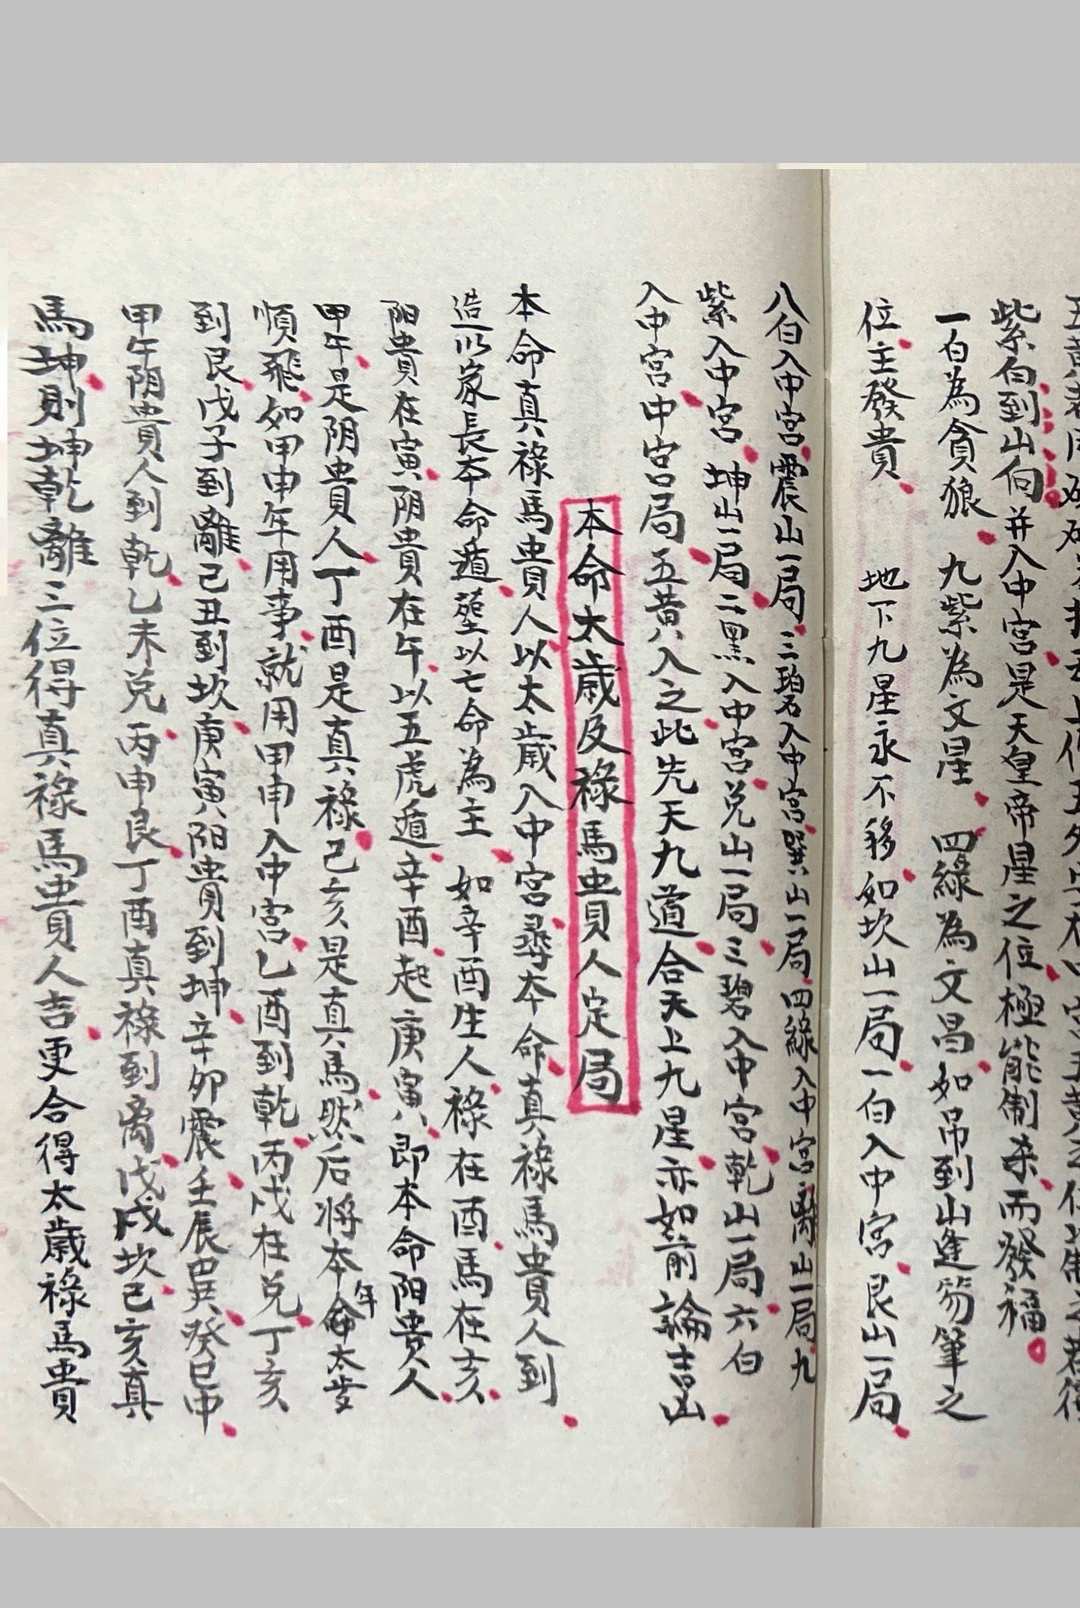 紫白到山向并入中宮是天皇帝星之位極能制杀而發福
一白為貪狼 九紫為文星 四綠為文昌如吊到山逢笏筆之
位主發貴 地下九星永不移如坎山一局一白入中宮艮山一局
八白入中宮震山一局三碧入中宮巽山一局四綠入中宮離山一局九
紫入中宮坤山一局二黑入中宮兌山一局三碧入中宮乾山一局六白
入中宮中宮局五黄入之此先天九道合天上九星亦如前論吉凶
本命太歲及祿馬貴人定局
本命真祿馬貴人以太歲入中宮尋本命真祿馬貴人到
造以家長本命遁塟以亡命為主 如辛酉生人祿在酉馬在亥
阳貴在寅阴貴在午以五虎遁辛酉起庚寅八即本命阳貴人
甲午是阴貴人丁酉是真祿己亥是真馬然后將本年太岁
順飛如甲申年用事就用甲申入中宮乙酉到乾丙戌在兌丁亥
到艮戊子到離己丑到坎庚寅阳貴到坤辛卯震壬辰巽癸巳中
甲午阴貴人到乾乙未兌丙申艮丁酉真祿到离戊戌坎己亥真
馬坤則坤乾離三位得真祿馬貴人吉更合得太歲祿馬貴